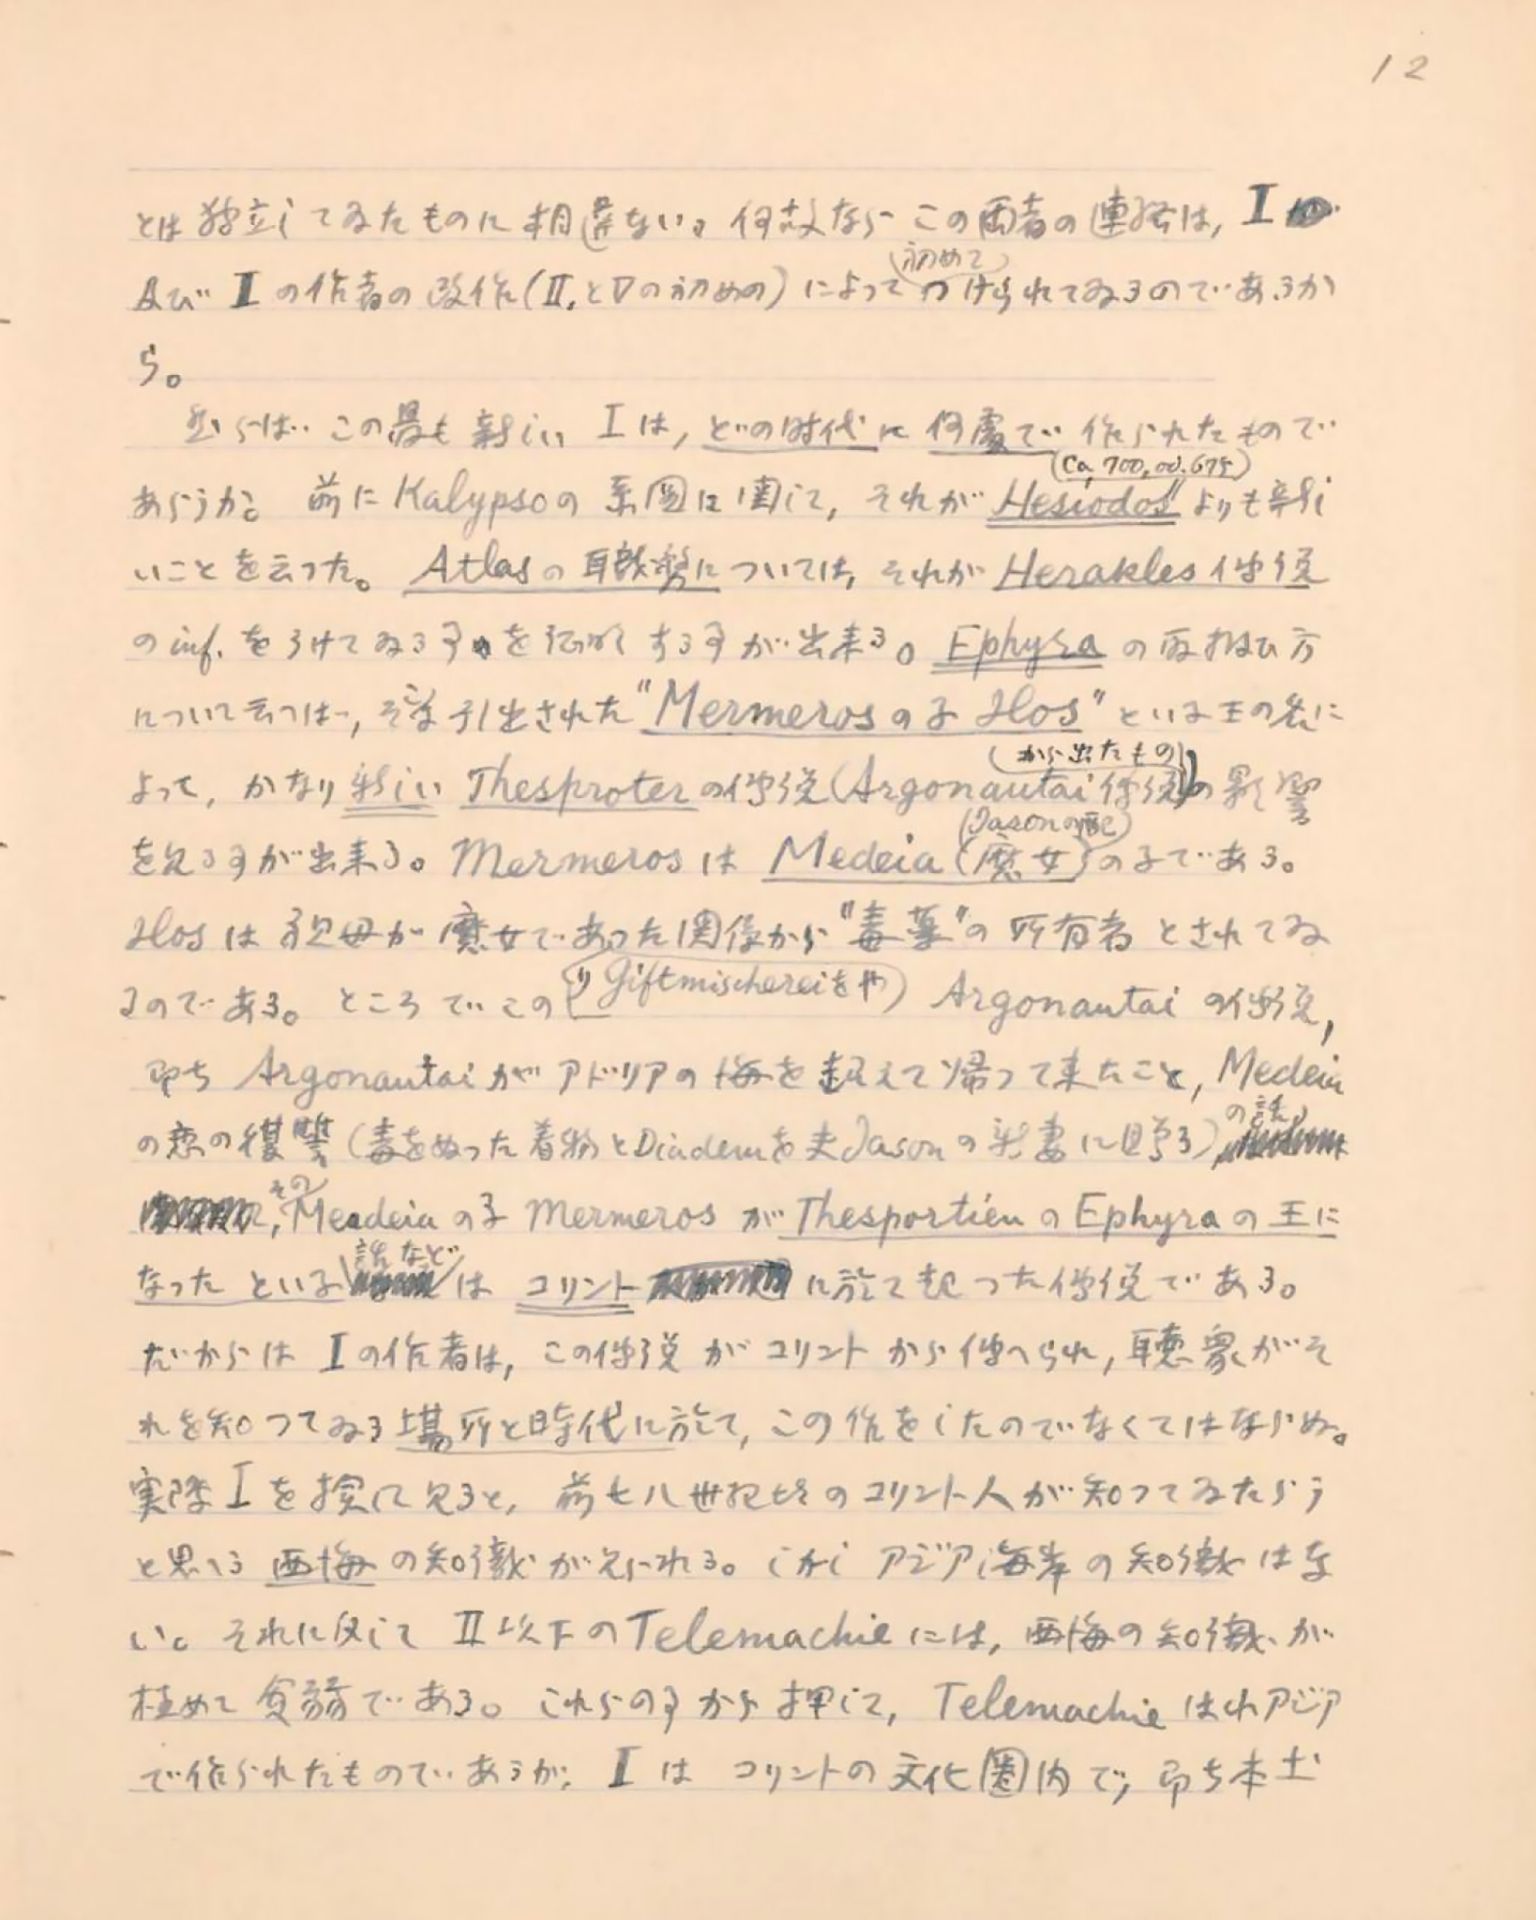 12
とは独立してゐたものに相違ない。何故なら この両者の連絡は, I
及び II の作者の改作(II, と V の初めの) によって 初めて つけられてゐるのであるか
ら。
然らば この最も新しい I は, どの時代に 何處で 作られたもので
(ca, 700, od. 675)
あらうか。 前に Kalypso の 系図に関して, それが Hesiodos よりも新し
いことを云つた。 Atlas の 職務に ついては, それが Herakles 伝説
の inf. をうけてゐる事を証明する事が出来る。 Ephyra の 取扱ひ方
について云つは, そこに引出された "Mermeros の子 Ilos" といふ王の名に
よって, かなり新しい Thesproter の伝説 (Argonautai 伝説から出たもの) の影響
を見る事が出来る。 Mermeros は Medeia (魔女) (Jason の妃) の子である。
Ilos は 祖母が 魔女であった関係から "毒薬" の 所有者 とされてゐ
るのである。 ところで この (Giftmischerei をや) Argonautai の伝説,
即ち Argonautai が アドリアの海を超えて帰って来たこと, Medeia
の恋の復讐 (毒をぬった着物と Diadem を夫 Jason の新妻に贈る) の話,
その Meadeia の子 Mermeros が Thesportien の Ephyra の 王に
なった といふ 話など は コリント に於て起つた伝説である。
だからは I の作者は, この伝説 が コリント から 伝へられ, 聴衆がそ
れを知つてゐる場所と時代に於て, この作をしたのでなくてはならぬ。
実際 I を探に見ると, 前七八世紀頃のコリント人が知つてゐたらう
と思へる 西海 の知識が見られる。しかし アジア海岸の知識はな
い。それに反して II 以下の Telemachie には, 西海の知識が
極めて貧弱である。 これらの事から押して, Telemachie は小アジア
で作られたものであるが, I は コリントの文化圏内で, 即ち本土